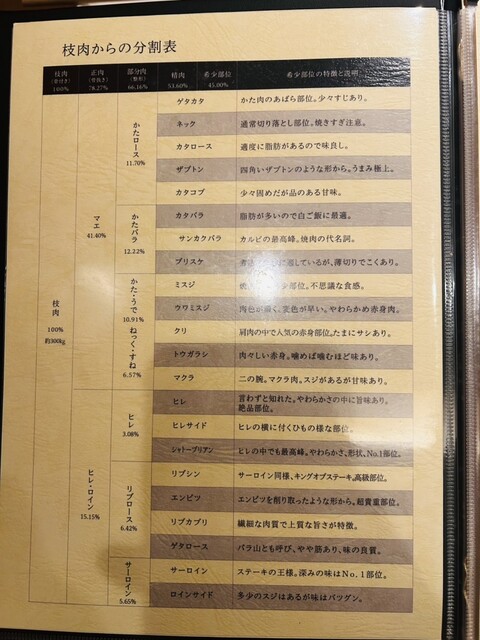 枝肉からの分割表
枝肉 (骨付き) 100% 正肉 (骨抜き) 78.27% 部分肉 (整形) 66.16% 精肉 53.60% 希少部位 45.00% 希少部位の特徴と説明
枝肉 100% 約300kg
マエ 41.40%
かたロース 11.70%
ゲタカタ かた肉のあばら部位。少々すじあり。
ネック 通常切り落とし部位。焼きすぎ注意。
カタロース 適度に脂肪があるので味良し。
ザブトン 四角いザブトンのような形から。うまみ極上。
カタコブ 少々固めだが品のある甘味。
かたバラ 12.22%
カタバラ 脂肪が多いので白ご飯に最適。
サンカクバラ カルビの最高峰。焼肉の代名詞。
ブリスケ しているが、薄切りでこくあり。
かた・うで 10.91%
ねっく・すね 6.57%
ミスジ 部位。不思議な食感。
ウワミスジ 肉色が 、変色が早い。やわらかめ赤身肉。
クリ 肩肉の中で人気の赤身部位。たまにサシあり。
トウガラシ 肉々しい赤身。噛めば噛むほど味あり。
マクラ 二の腕。マクラ肉。スジがあるが甘味あり。
ヒレ・ロイン 15.15%
ヒレ 3.08%
ヒレ 言わずと知れた。やわらかさの中に旨味あり。
絶品部位。
ヒレサイド ヒレの横に付くひもの様な部位。
シャトーブリアン ヒレの中でも最高峰。やわらかさ、形状、No.1部位。
リブロース 6.42%
リブシン サーロイン同様、キングオブステーキ。高級部位。
エンピツ エンピツを削り取ったような形から。超貴重部位。
リブカブリ 繊細な肉質で上質な旨さが特徴。
ゲタロース バラ山とも呼び、やや筋あり、味の良質。
サーロイン 5.65%
サーロイン ステーキの王様。深みの味はNo.1部位。
ロインサイド 多少のスジはあるが味はバツグン。